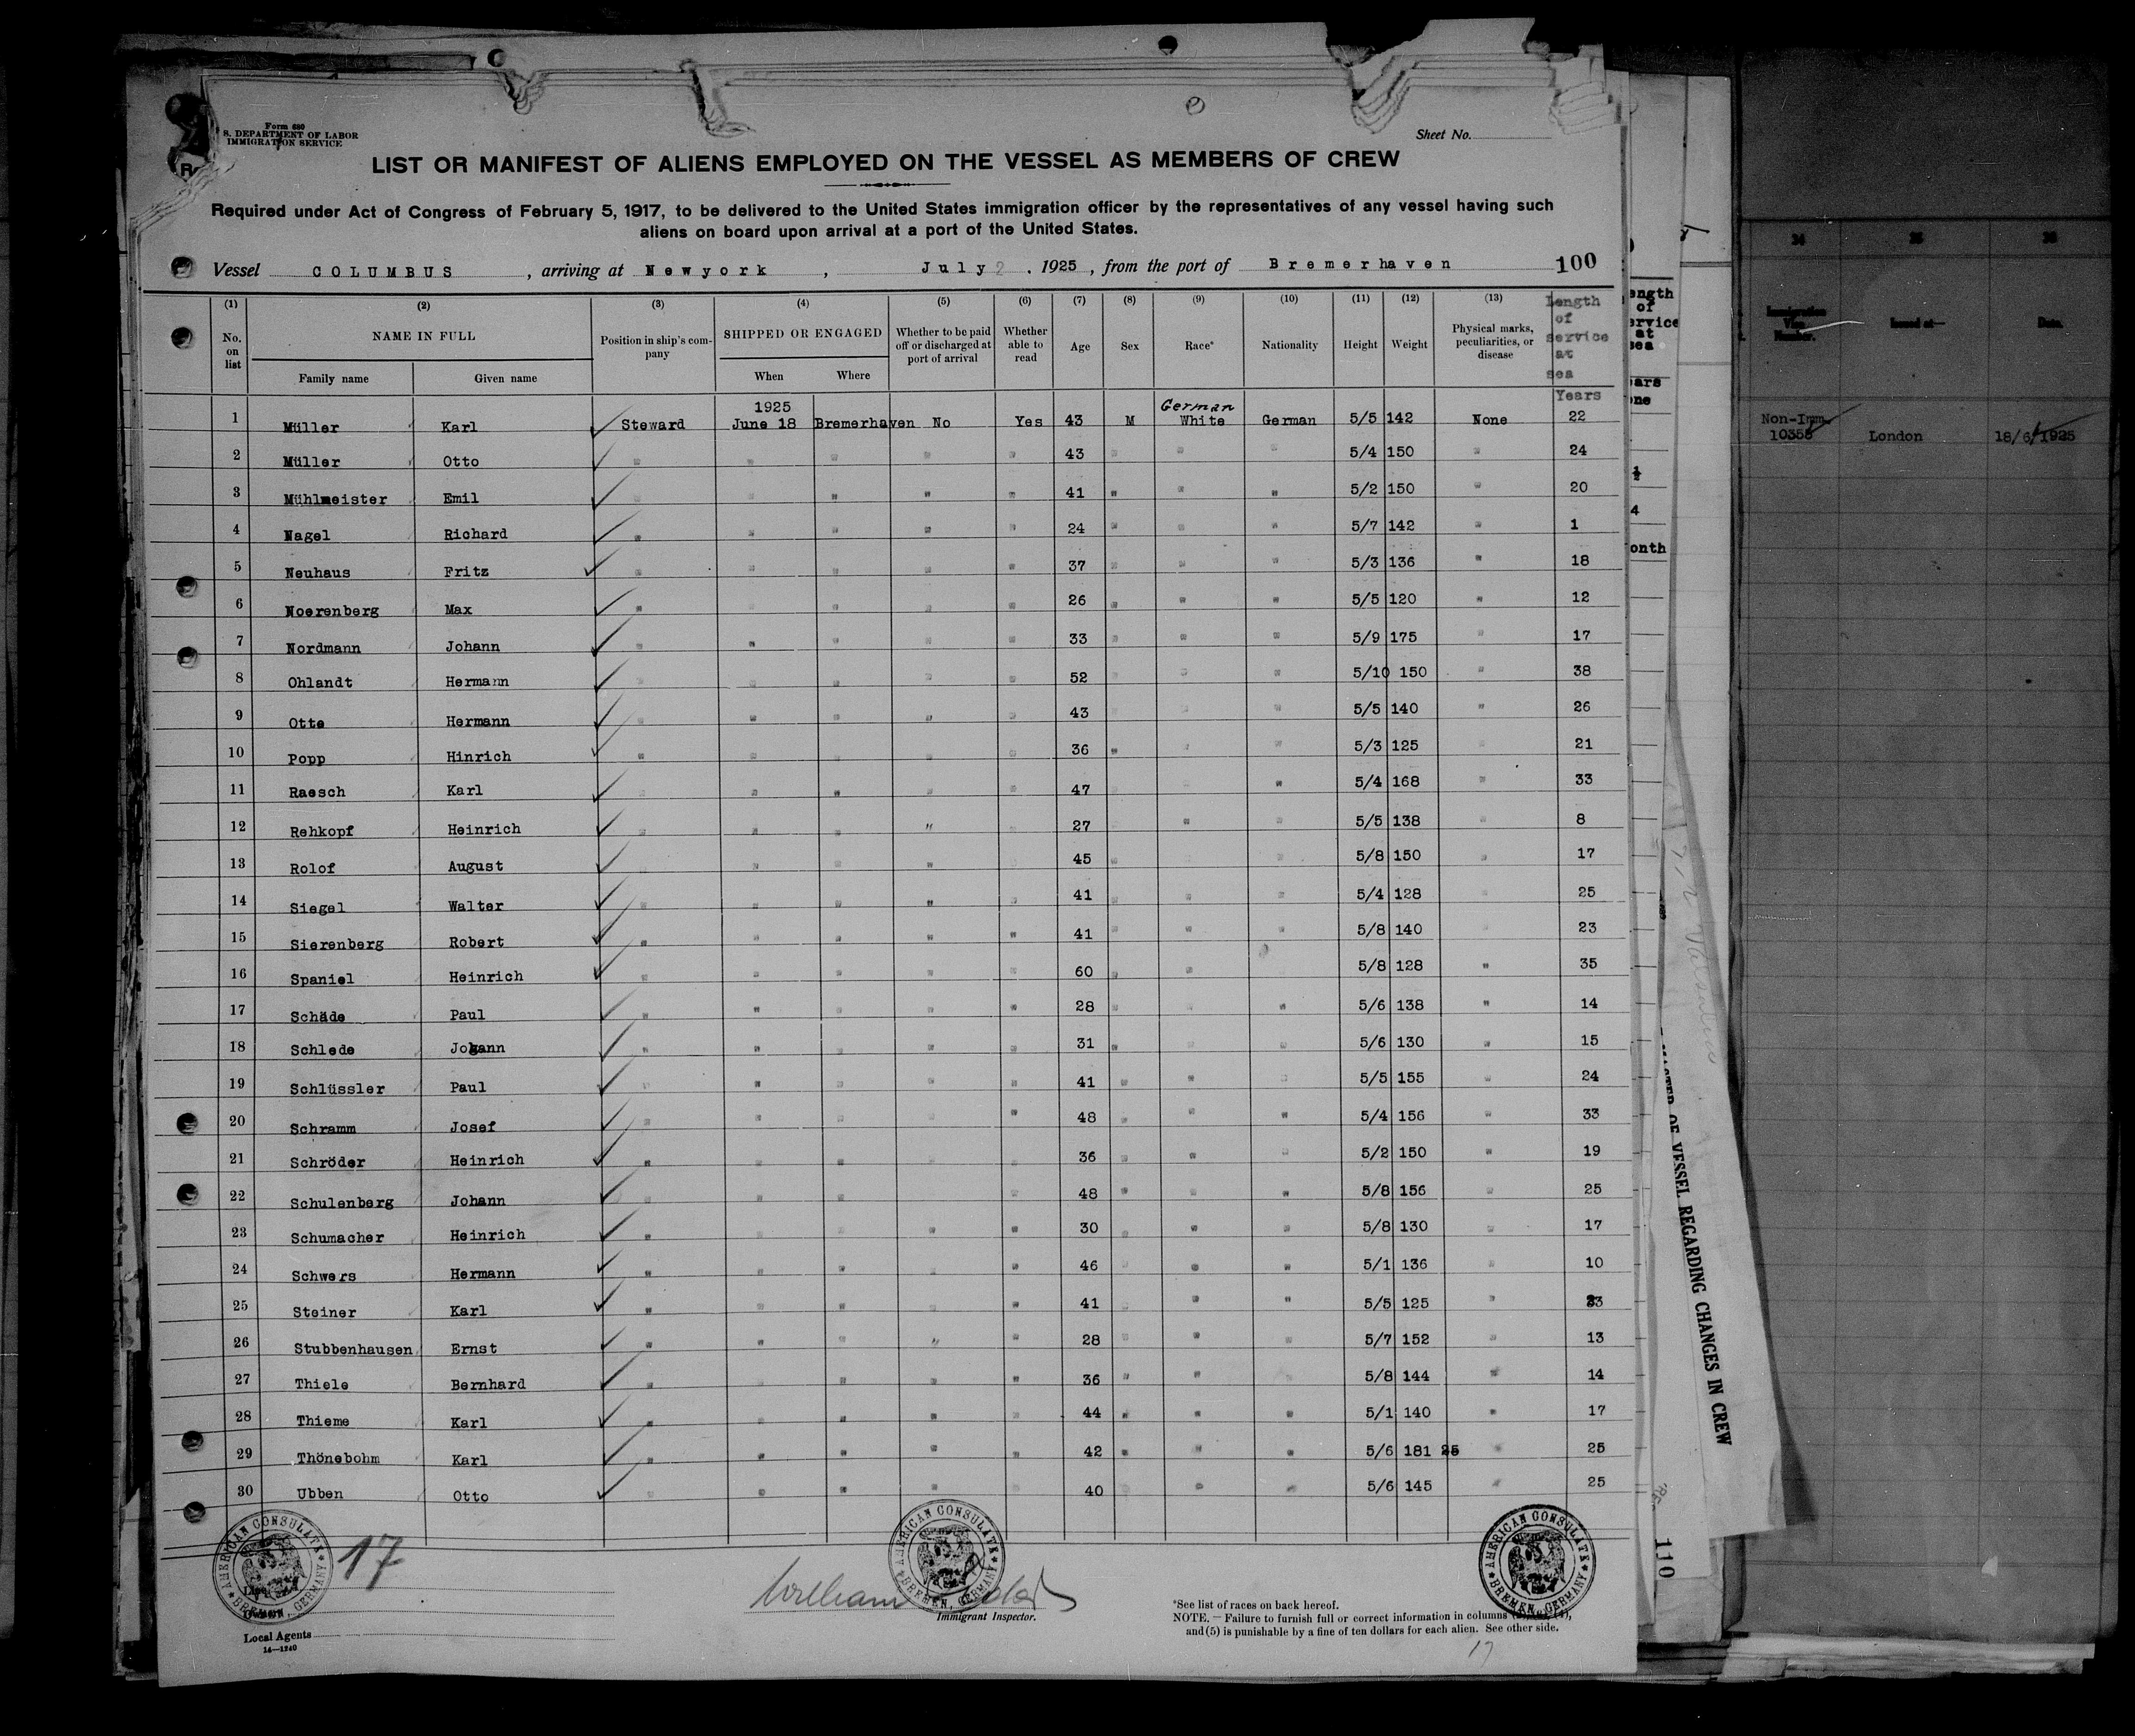 Form 680
S. DEPARTMENT OF LABOR
IMMIGRATION SERVICE
Sheet No.
LIST OR MANIFEST OF ALIENS EMPLOYED ON THE VESSEL AS MEMBERS OF CREW
Required under Act of Congress of February 5, 1917, to be delivered to the United States immigration officer by the representatives of any vessel having such
aliens on board upon arrival at a port of the United States.
Vessel COLUMBUS, arriving at Newyork, July 2, 1925, from the port of Bremerhaven 100
(1) (2) (3) (4) (5) (6) (7) (8) (9) (10) (11) (12) (13)
No. on list NAME IN FULL Family name Given name Position in ship's company SHIPPED OR ENGAGED When Where Whether to be paid off or discharged at port of arrival Whether able to read Age Sex Race* Nationality Height Weight Physical marks, peculiarities, or disease Length of service at sea
Years
1925 German
1 Müller Karl Steward June 18 Bremerhaven No Yes 43 M White German 5/5 142 None 22
2 Müller Otto " " " " " 43 " " " 5/4 150 " 24
3 Mühlmeister Emil " " " " " 41 " " " 5/2 150 " 20
4 Nagel Richard " " " " " 24 " " " 5/7 142 " 1
5 Neuhaus Fritz " " " " " 37 " " " 5/3 136 " 18
6 Noerenberg Max " " " " " 26 " " " 5/5 120 " 12
7 Nordmann Johann " " " " " 33 " " " 5/9 175 " 17
8 Ohlandt Hermann " " " " " 52 " " 5/10 150 " 38
9 Otte Hermann " " " " " 43 " " 5/5 140 " 26
10 Popp Hinrich " " " " " 36 " " " 5/3 125 " 21
11 Raesch Karl " " " " " 47 " 5/4 168 " 33
12 Rehkopf Heinrich " " " " 27 " " 5/5 138 " 8
13 Rolof August " " " " 45 " " 5/8 150 " 17
14 Siegel Walter " " " " " 41 " " " 5/4 128 " 25
15 Sierenberg Robert " " " " " 41 " " " 5/8 140 " 23
16 Spaniel Heinrich " " " " " 60 " " 5/8 128 " 35
17 Schäde Paul " " " " " 28 " " " 5/6 138 " 14
18 Schlede Johann " " " " " 31 " " " 5/6 130 " 15
19 Schlüssler Paul " " " " " 41 " " " 5/5 155 " 24
20 Schramm Josef " " " " " 48 " " " 5/4 156 " 33
21 Schröder Heinrich " " " " " 36 " " " 5/2 150 " 19
22 Schulenberg Johann " " " " 48 " " " 5/8 156 " 25
23 Schumacher Heinrich " " " " " 30 " " " 5/8 130 " 17
24 Schwers Hermann " " " " " 46 " " " 5/1 136 " 10
25 Steiner Karl " " " " 41 " " " 5/5 125 "
26 Stubbenhausen Ernst " " " " " 28 " " " 5/7 152 " 13
27 Thiele Bernhard " " " " 36 " " 5/8 144 " 14
28 Thieme Karl " " " " " 44 " " " 5/1 140 " 17
29 Thönebohm Karl " " " " " 42 " " " 5/6 181 25 " 25
30 Ubben Otto " " " " 40 " " 5/6 145 " 25
AMERICAN CONSULATE BREMEN, GERMANY
17
AMERICAN CONSULATE BREMEN, GERMANY
AMERICAN CONSULATE BREMEN, GERMANY
William
Immigrant Inspector.
Local Agents
14—1240
*See list of races on back hereof.
NOTE.—Failure to furnish full or correct information in columns (4),
and (5) is punishable by a fine of ten dollars for each alien. See other side.
17
ength
of
ervice
at
sea
ears
one
½
4
onth
OF VESSEL REGARDING CHANGES IN CREW
110
34 35 36
Immigration Visa Number. Issued at— Date.
Non-Imm.
10358 London 18/6/1925